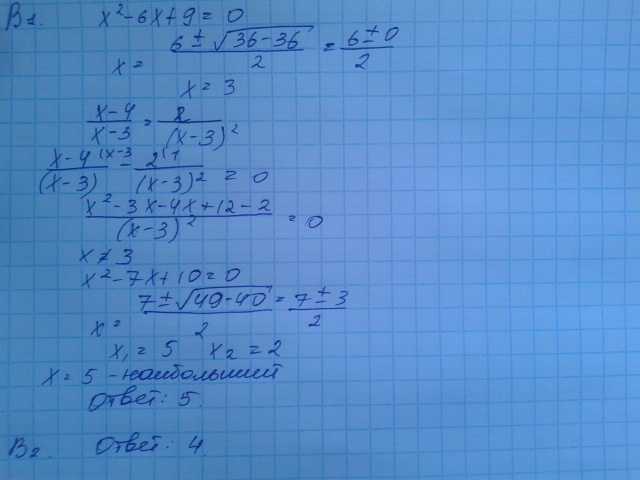 B1. x² - 6x + 9 = 0
x = (6 ± √(36-36))/2 = (6 ± 0)/2
x = 3
(x-4)/(x-3) = 2/(x-3)²
(x-4 (x-3)/(x-3) - 2(1/(x-3)² = 0
(x² - 3x - 4x + 12 - 2)/(x-3)² = 0
x ≠ 3
x² - 7x + 10 = 0
x = (7 ± √(49-40))/2 = (7 ± 3)/2
x₁ = 5 x₂ = 2
x = 5 - наибольший
Ответ: 5.
B2. Ответ: 4.